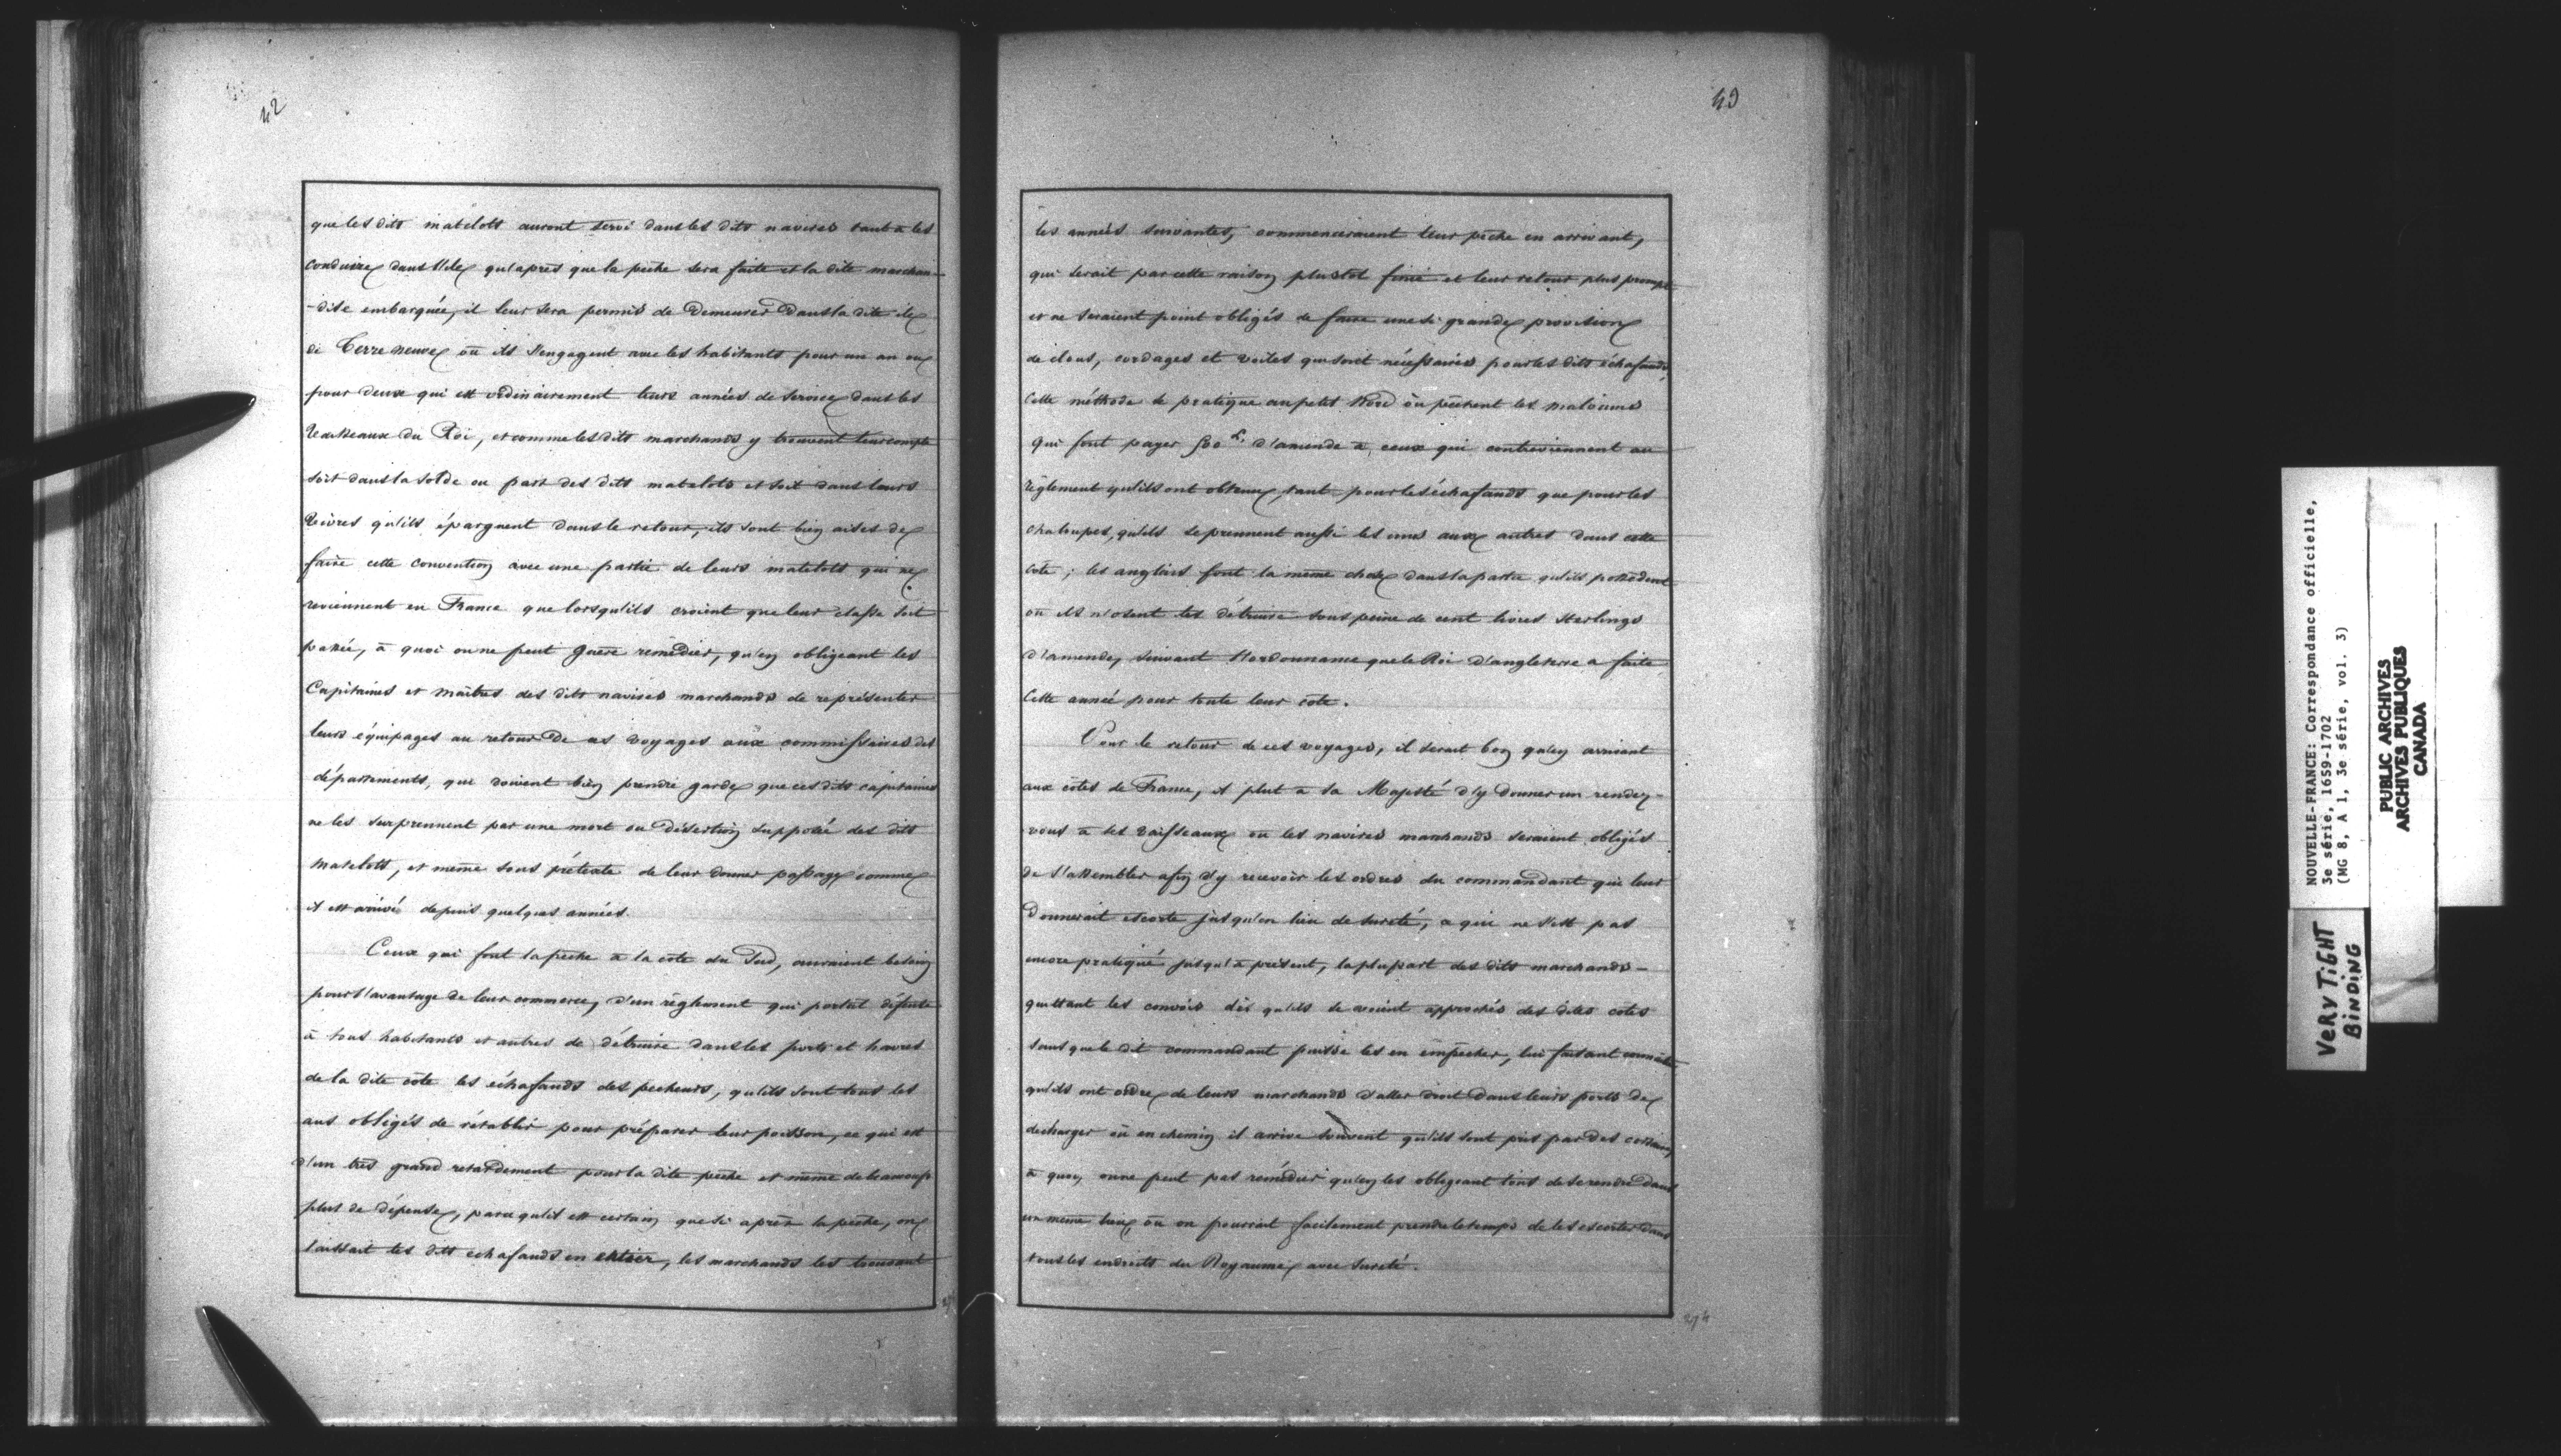 42
que les dits matelots auront servi dans les dits navires tant à les
conduire dans l'ile qu'après que la pêche sera faite et la dite marchan-
-dise embarquée, il leur sera permis de Demeurer Dans la dite ile
de Terre neuve où ils s'engagent avec les habitants pour un an ou
pour deux qui est ordinairement leurs années de service dans les
Vaisseaux du Roi, et comme les dits marchands y trouvent leur compte
soit dans la solde ou part des dits matelots et soit dans leurs
Vivres qu'ils épargnent dans le retour, ils sont bien aises de
faire cette convention avec une partie de leurs matelots qui ne
reviennent en France que lorsqu'ils croient que leur classe soit
passée, à quoi on ne peut guère remédier, qu'en obligeant les
Capitaines et maitres des dits navires marchands de représenter
leurs équipages au retour De ces voyages aux commissaires des
départements, qui doivent bien prendre garde que ces dits capitaines
ne les surprennent par une mort ou Désertion supposée des dits
matelots, et même sous prétexte de leur donner passage comme
il est arrivé depuis quelques années.
Ceux qui font la pêche à la côte du Sud, auraient besoin
pour l'avantage de leur commerce, d'un règlement qui portât défense
à tous habitants et autres de détruire dans les ports et havres
de la dite côte les échafauds des pecheurs, qu'ils sont tous les
ans obligés de rétablir pour préparer leur poisson, ce qui est
d'un très grand retardement pour la dite pêche et même de beaucoup
plus de dépense, parce qu'il est certain que si après la pêche, on
laissait les dits echafauds en entier, les marchands les trouvant
43
les années suivantes, commenceraient leur pêche en arrivant,
qui serait par cette raison plustot finie et leur retour plus prompt
et ne seraient point obligés de faire une si grande provision
de clous, cordages et voiles qui sont nécessaires pour les dits échafauds,
Cette méthode se pratique au petit Nord où pêchent les malouins
qui font payer 500 l. d'amende à ceux qui contreviennent au
règlement qu'ils ont obtenu, tant pour les échafauds que pour les
chaloupes, qu'ils se prennent aussi les uns aux autres dans cette
côte; les anglais font la même chose dans la partie qu'ils possèdent
où ils n'osent les détruire sous peine de cent livres Sterlings
d'amende, suivant l'ordonnance que le Roi d'angleterre a faite
Cette année pour toute leur côte.
Pour le retour de ces voyages, il serait bon qu'en arrivant
aux côtes de France, il plut à Sa Majesté d'y donner un rendez-
vous à ses vaisseaux où les navires marchands seraient obligés
de s'assembler afin d'y recevoir les ordres du commandant qui leur
Donnerait escorte jusqu'en lieu de sureté, ce qui ne s'est pas
encore pratiqué jusqu'à présent, la plupart des dits marchands-
quittant les convois dès qu'ils se voient approchés des dites côtes
sans que le dit commandant puisse les en empêcher, lui faisant connaître
qu'ils ont ordre de leurs marchands d'aller droit Dans leurs ports de
decharger où en chemin il arrive souvent qu'ils sont pris par des corsaires,
à quoy on ne peut pas remédier qu'en les obligeant tous de se rendre Dans
un même lieu où on pourrait facilement prendre le temps de les escorter dans
tous les endroits du Royaume avec sureté.
274
NOUVELLE-FRANCE: Correspondance officielle,
3e série, 1659-1702
(MG 8, A 1, 3e série, vol. 3)
PUBLIC ARCHIVES
ARCHIVES PUBLIQUES
CANADA
VERY TIGHT
BINDING